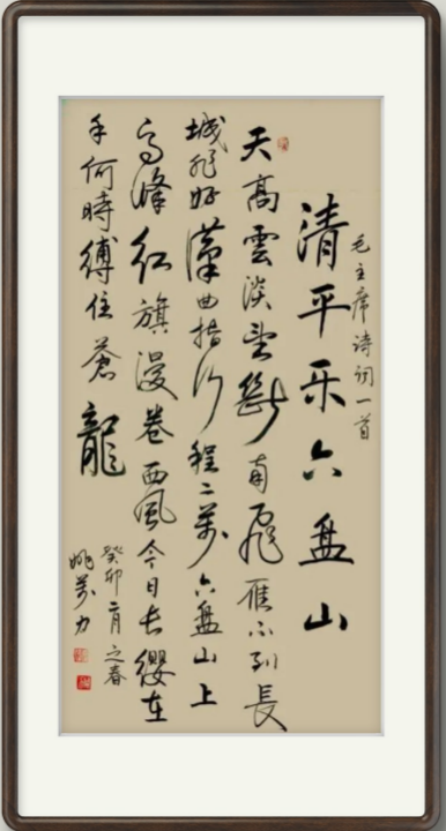 毛主席诗词一首
清平乐六盘山
天高雲淡望斷南飛雁不到長
城非好漢屈指行程二萬六盘山上
高峰红旗漫卷西风今日长缨在
手何時縛住蒼龍
癸卯二月之春
姚万力